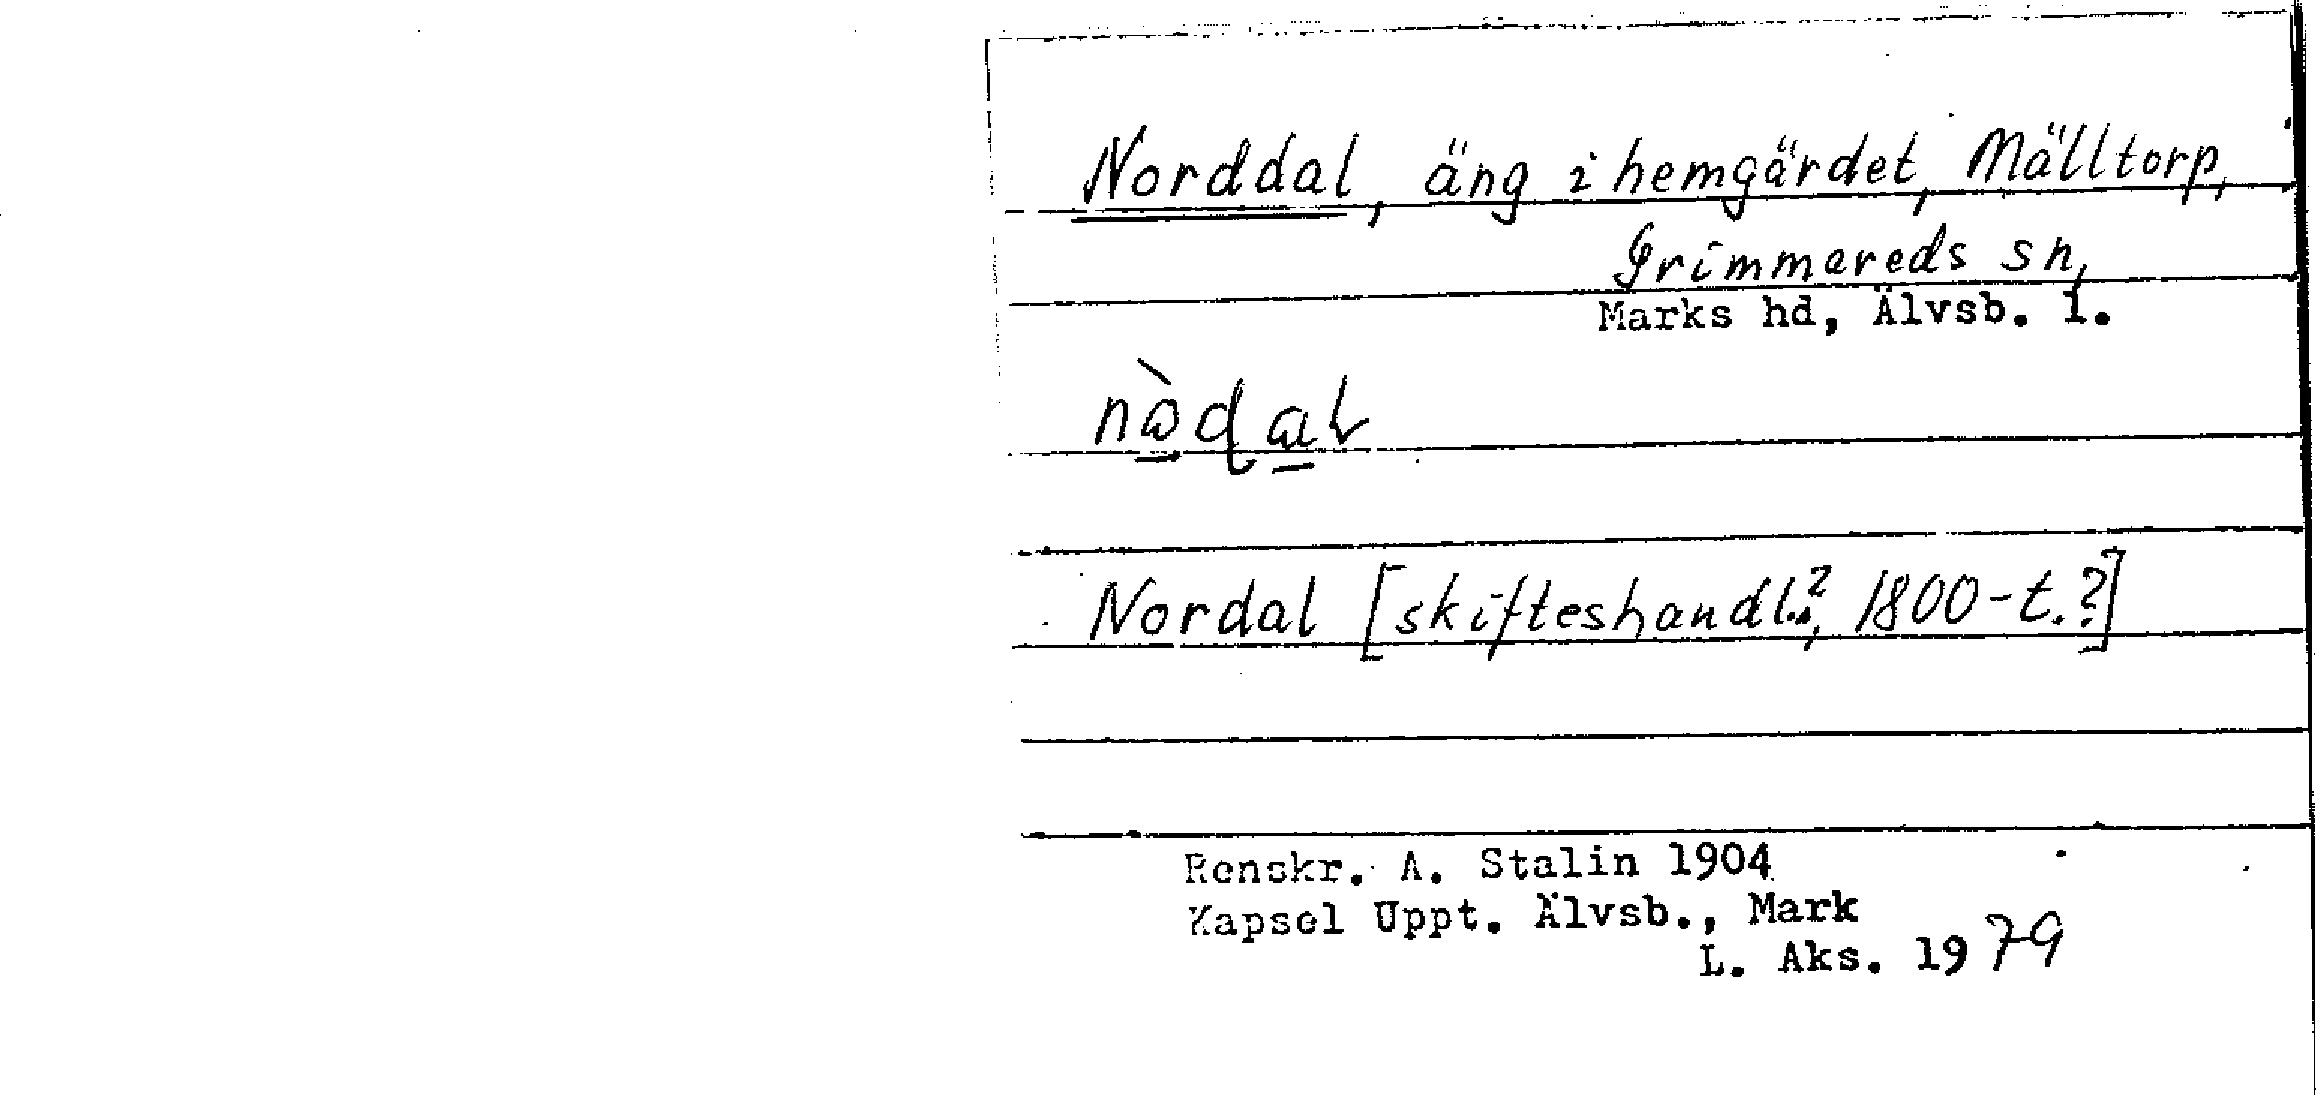 Norddal, äng i hemgärdet, Mälltorp,
Grimmareds sn,
Marks hd, Älvsb. l.
Nordal [skifteshandl.?, 1800-t.?]
Renskr. A. Stalin 1904
Kapsel Uppt. Älvsb., Mark
L. Aks. 1979